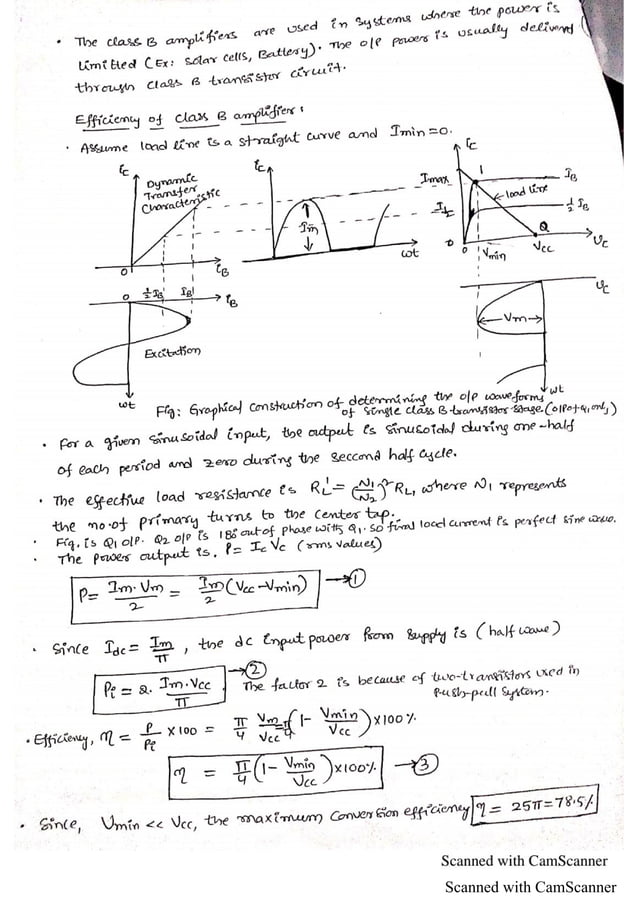 • The class B amplifiers are used in systems where the power is
limitted (Ex: solar cells, Battery). The o/p power is usually delivered
through class B transistor circuit.
Efficiency of class B amplifier:
• Assume load line is a straight curve and Imin=0.
ic
Dynamic
Transfer
Characteristic
0
iB
ic
Im
ωt
ic
Imax
1
IB
load line
½ IB
Q
0
0
Vmin
Vcc
Vc
0
½IB
IB
iB
Excitation
ωt
Vc
Vm
ωt
Fig: Graphical construction of determining the o/p waveforms
of single class B-transistor stage (o/p of Q1 only)
• For a given sinusoidal input, the output is sinusoidal during one-half
of each period and zero during the seccond half cycle.
• The effective load resistance is RL' = (N1/N2)² RL, where N1 represents
the no. of primary turns to the center tap.
• Fig. is Q1 o/p. Q2 o/p is 180 out of phase with Q1. So final load current is perfect sine wave.
• The power output is, P= Ic Vc (rms values)
P= Im.Vm/2 = Im/2 (Vcc-Vmin) → ①
• Since Idc = Im/π, the dc input power from supply is (half wave)
Pi = 2. Im.Vcc/π → ②
The factor 2 is because of two-transistors used in
push-pull system.
• Efficiency, η = P/Pi × 100 = π/4 Vm/Vcc = π/4 (1- Vmin/Vcc) ×100%
η = π/4 (1- Vmin/Vcc) ×100% → ③
• Since, Vmin << Vcc, the maximum conversion efficiency η = 25π = 78.5%
Scanned with CamScanner
Scanned with CamScanner